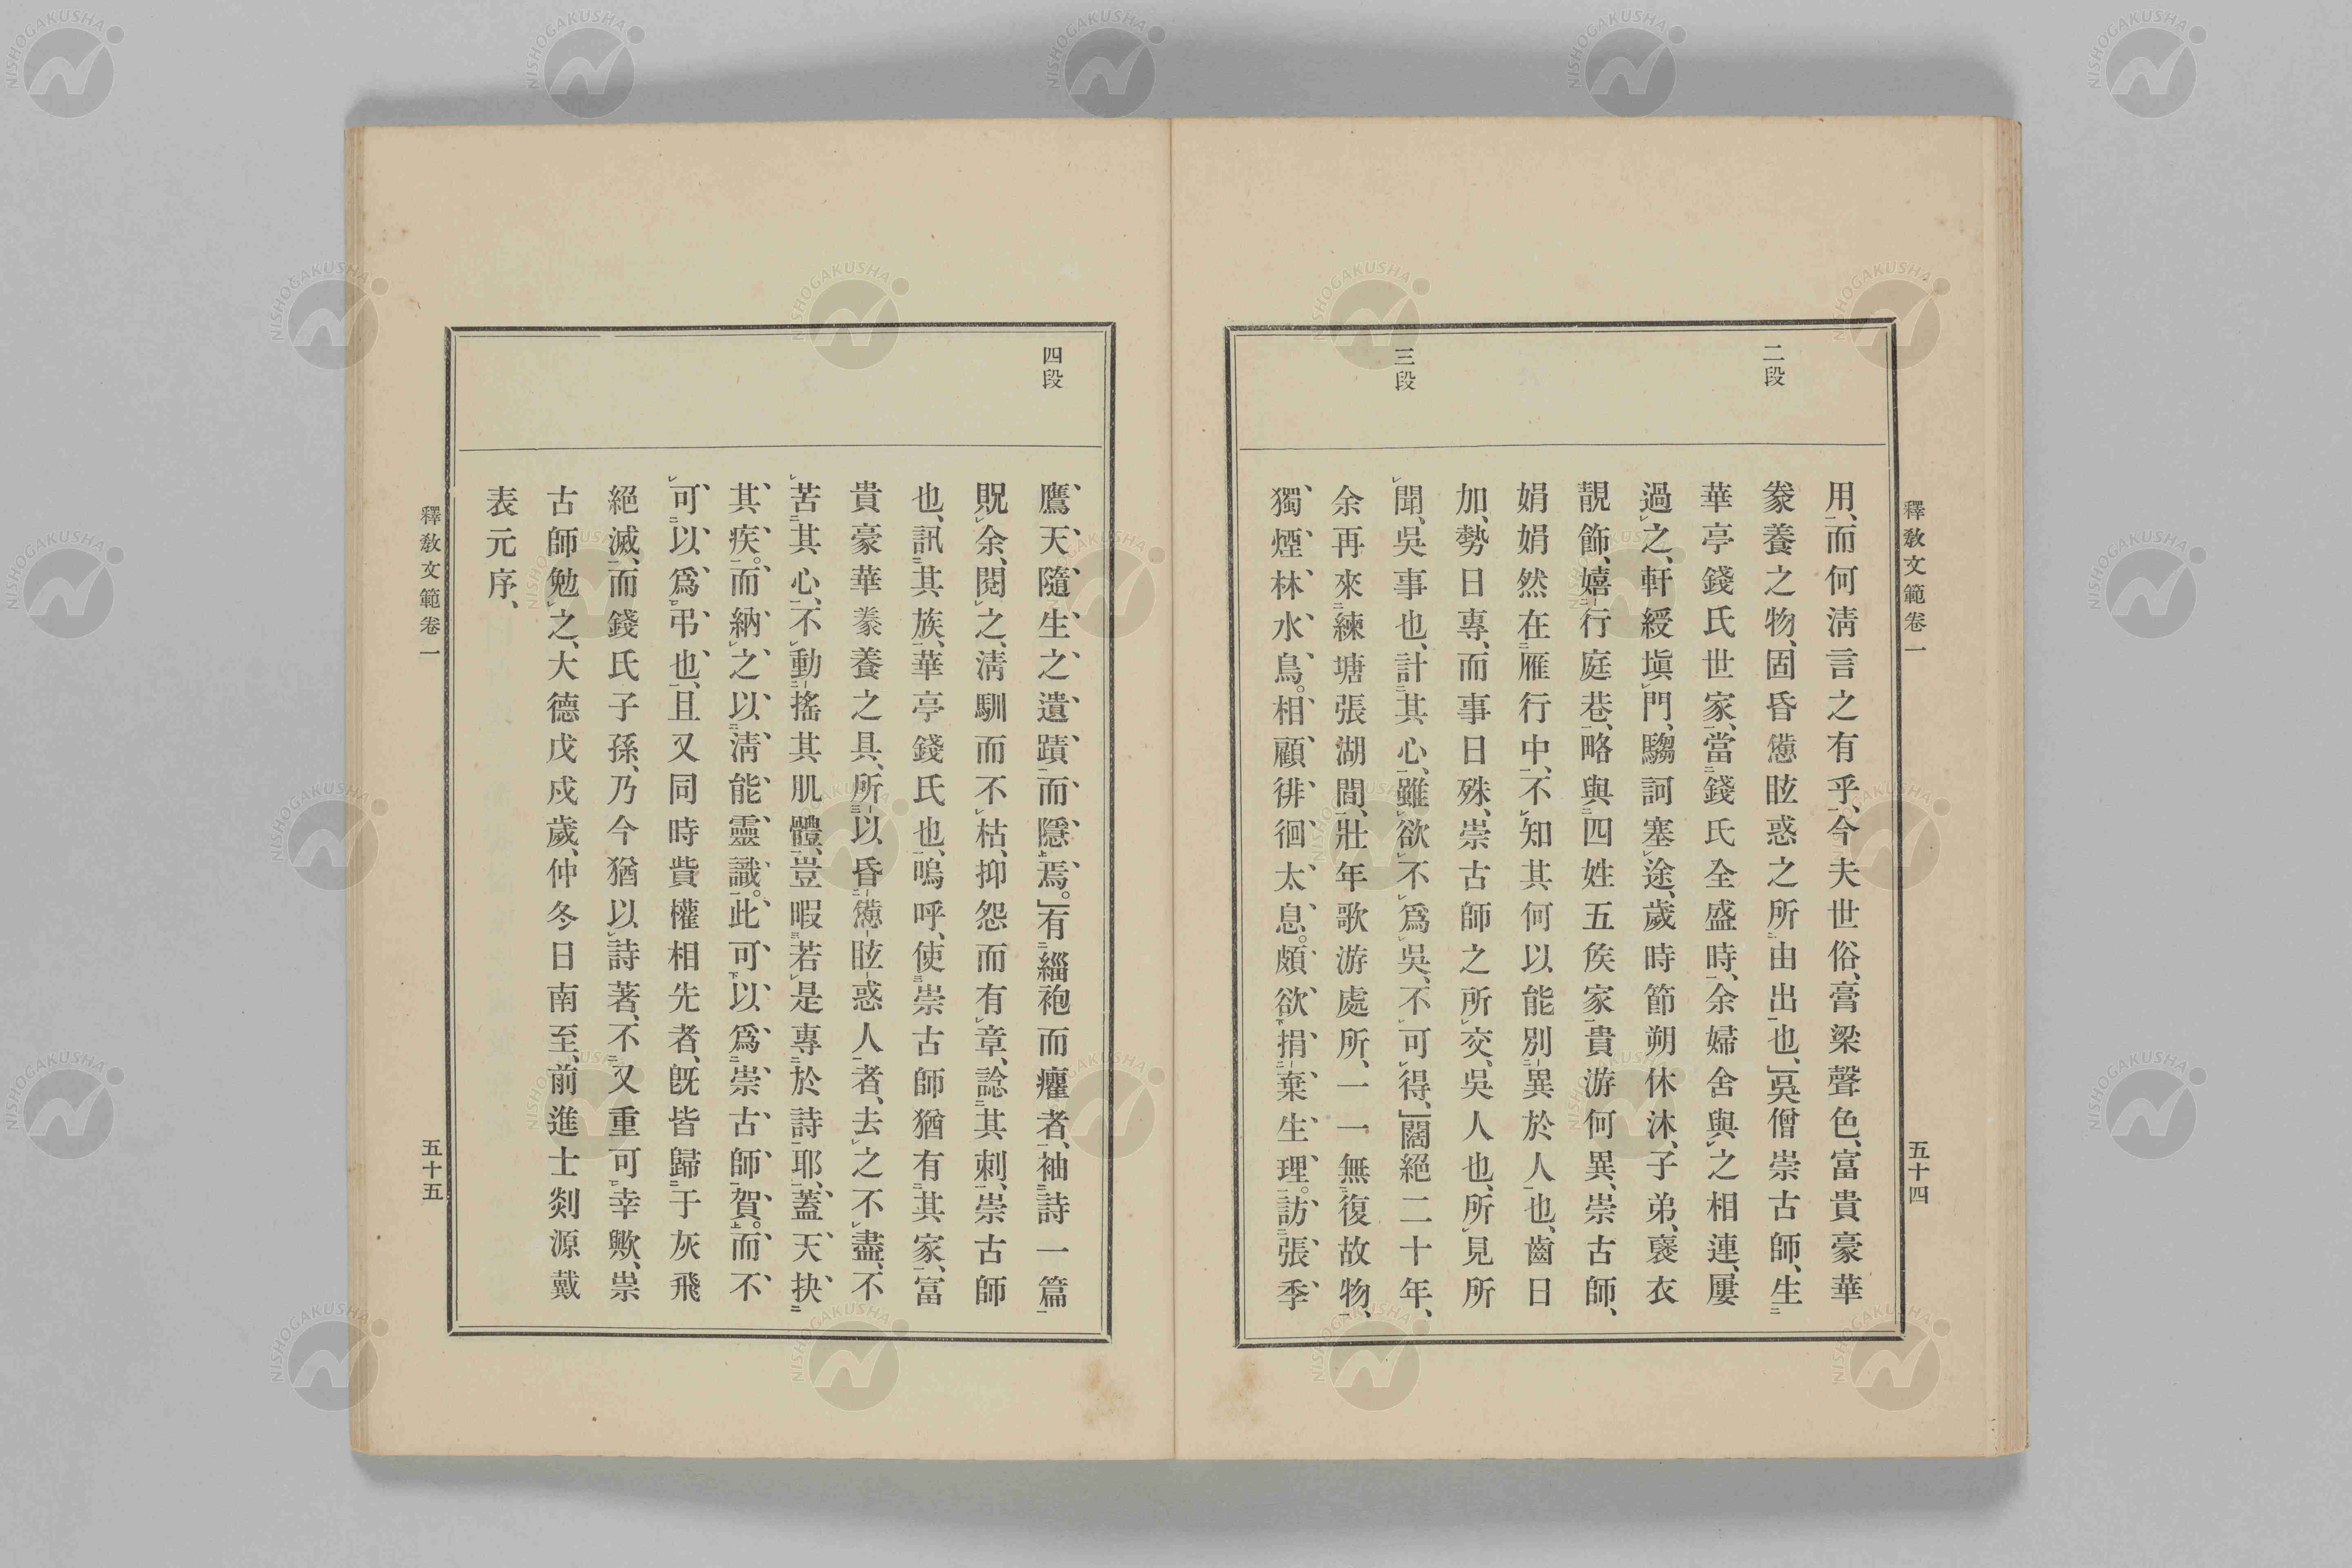 釋敎文範卷一
五十四
二段
三段
用、而何淸言之有乎、今夫世俗、膏粱聲色、富貴豪華
豢養之物、固昏憊眩惑之所由出也、吳僧崇古師、生
華亭錢氏世家、當錢氏全盛時、余婦舍與之相連、屢
過之、軒綬塡門、騶訶塞途、歲時節朔休沐、子弟、褎衣
靚飾、嬉行庭巷、略與四姓五矦家貴游何異、崇古師、
娟娟然在雁行中、不知其何以能別異於人也、齒日
加、勢日專、而事日殊、崇古師之所交、吳人也、所見所
聞、吳事也、計其心、雖欲不爲吳、不可得、闊絕二十年、
余再來練塘張湖間、壯年歌游處所、一一無復故物、
獨煙林水鳥。相顧徘徊太息。頗欲捐棄生理。訪張季
四段
鷹天隨生之遺蹟而隱焉。有緇袍而癯者、袖詩一篇
貺余、閱之、淸馴而不枯、抑怨而有章、諗其刺、崇古師
也、訊其族、華亭錢氏也、嗚呼、使崇古師猶有其家、富
貴豪華豢養之具、所以昏憊眩惑人者、去之不盡、不
苦其心、不動搖其肌體、豈暇若是專於詩耶、蓋天抉
其疾。而納之以淸能靈識。此可以爲崇古師賀。而不
可以爲弔也、且又同時貲權相先者、旣皆歸于灰飛
絕滅、而錢氏子孫、乃今猶以詩著、不又重可幸歟、崇
古師勉之、大德戊戍歲、仲冬日南至、前進士剡源戴
表元序、
釋敎文範卷一
五十五
NISHOGAKUSHA